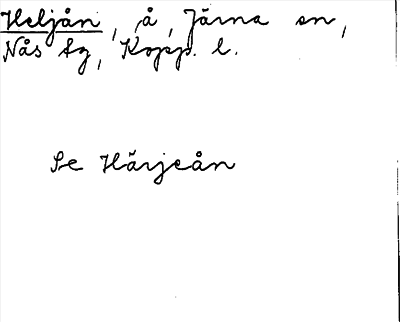 Heljån, å, Järna sn,
Nås tg, Kopp. l.
Se Härjeån